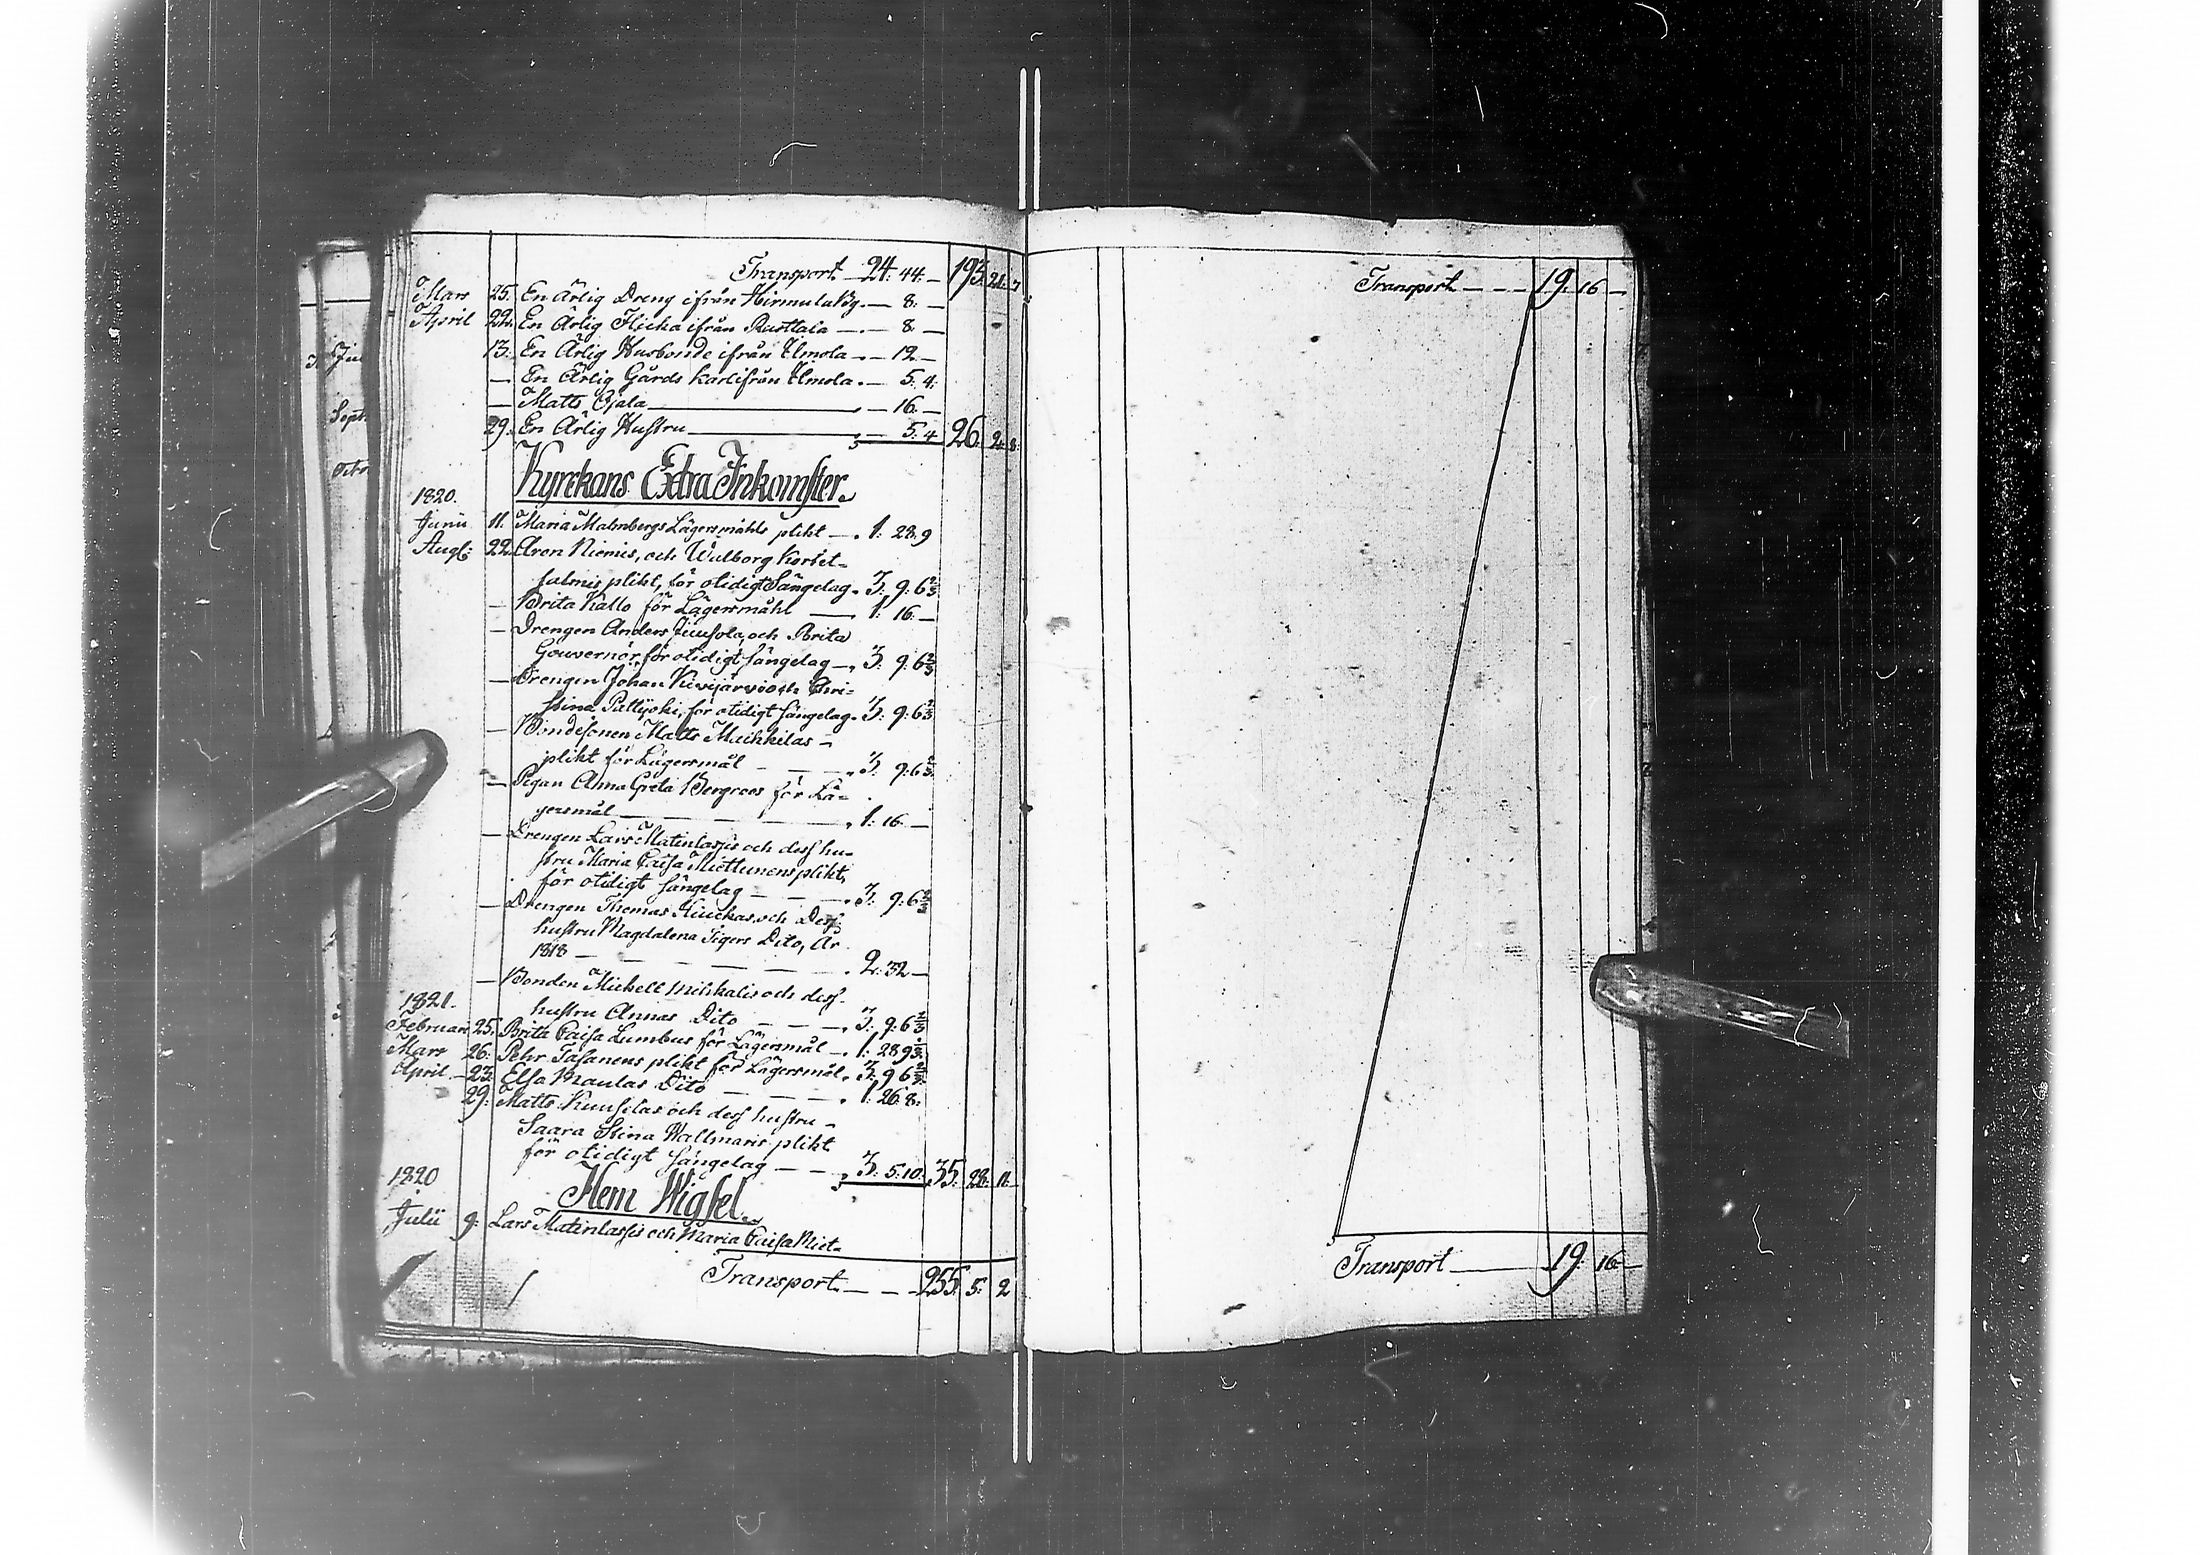 Transport — 24. 44. — 193. 21. 7
Mars 25. En Ärlig Dreng ifrån Hirmula By. — 8. —
April 22. En Ärlig Flicka ifrån — 8. —
13. En Ärlig Husbonde ifrån Ilmola. — 12 —
— En Ärlig Gårds karl ifrån Ilmola. — 5. 4.
— Matts Ojala — 16. —
29. En Ärlig Hustru — 5. 4 26. 2. 8.
Kyrckans Extra Inkomster.
1820.
Junii 11. Maria Malmbergs Lägersmåhls plikt —. 1. 28. 9
Augt: 22. Aron Niemis, och Walborg
plikt, för otidigt Sängelag. 3. 9. 6 2/3
— Brita Kallo för Lägersmåhl — 1. 16. —
— Drengen Anders och Brita
Gouvernör, för otidigt sängelag —. 3. 9. 6 2/3
— Drengen Johan Kivijärvi och Chri=
stina för otidigt sängelag. 3. 9. 6 2/3
— Bondesonen Matts —
plikt för Lägersmål — — . 3. 9. 6 2/3
— Pigan Anna Greta Bergroos för Lä=
gersmål — — — . 1. 16. —
— Drengen Lars Matinlassis och dess hu=
stru Maria Caisa Miettunens plikt,
för otidigt sängelag — — . 3. 9. 6 2/3
— Drengen Thomas och Dess
hustru Magdalena Dito, År
1818 — — — — . 2. 32 —
— Bonden Michell och dess
1821. hustru Annas Dito — — —. 3. 9. 6 2/3
Februari 25. Brita Caisa Lumbus för Lägersmål —. 1. 28. 9
Mars 26. Pehr Tasanens plikt för Lägersmål. 3. 9. 6 2/3
April — 23. Elsa Maulas Dito — — — . 1. 26. 8.
29. Matts och dess hustru —
Saara Stina Wallmaris plikt
för otidigt sängelag — — 3. 5. 10. 35. 28. 11.
1820 Hem Wigsel.
Julii 9. Lars Matinlassis och Maria Caisa Miet=
Transport — — — 255. 5. 2
Transport — — — 19. 16 —
Transport — 19. 16 —